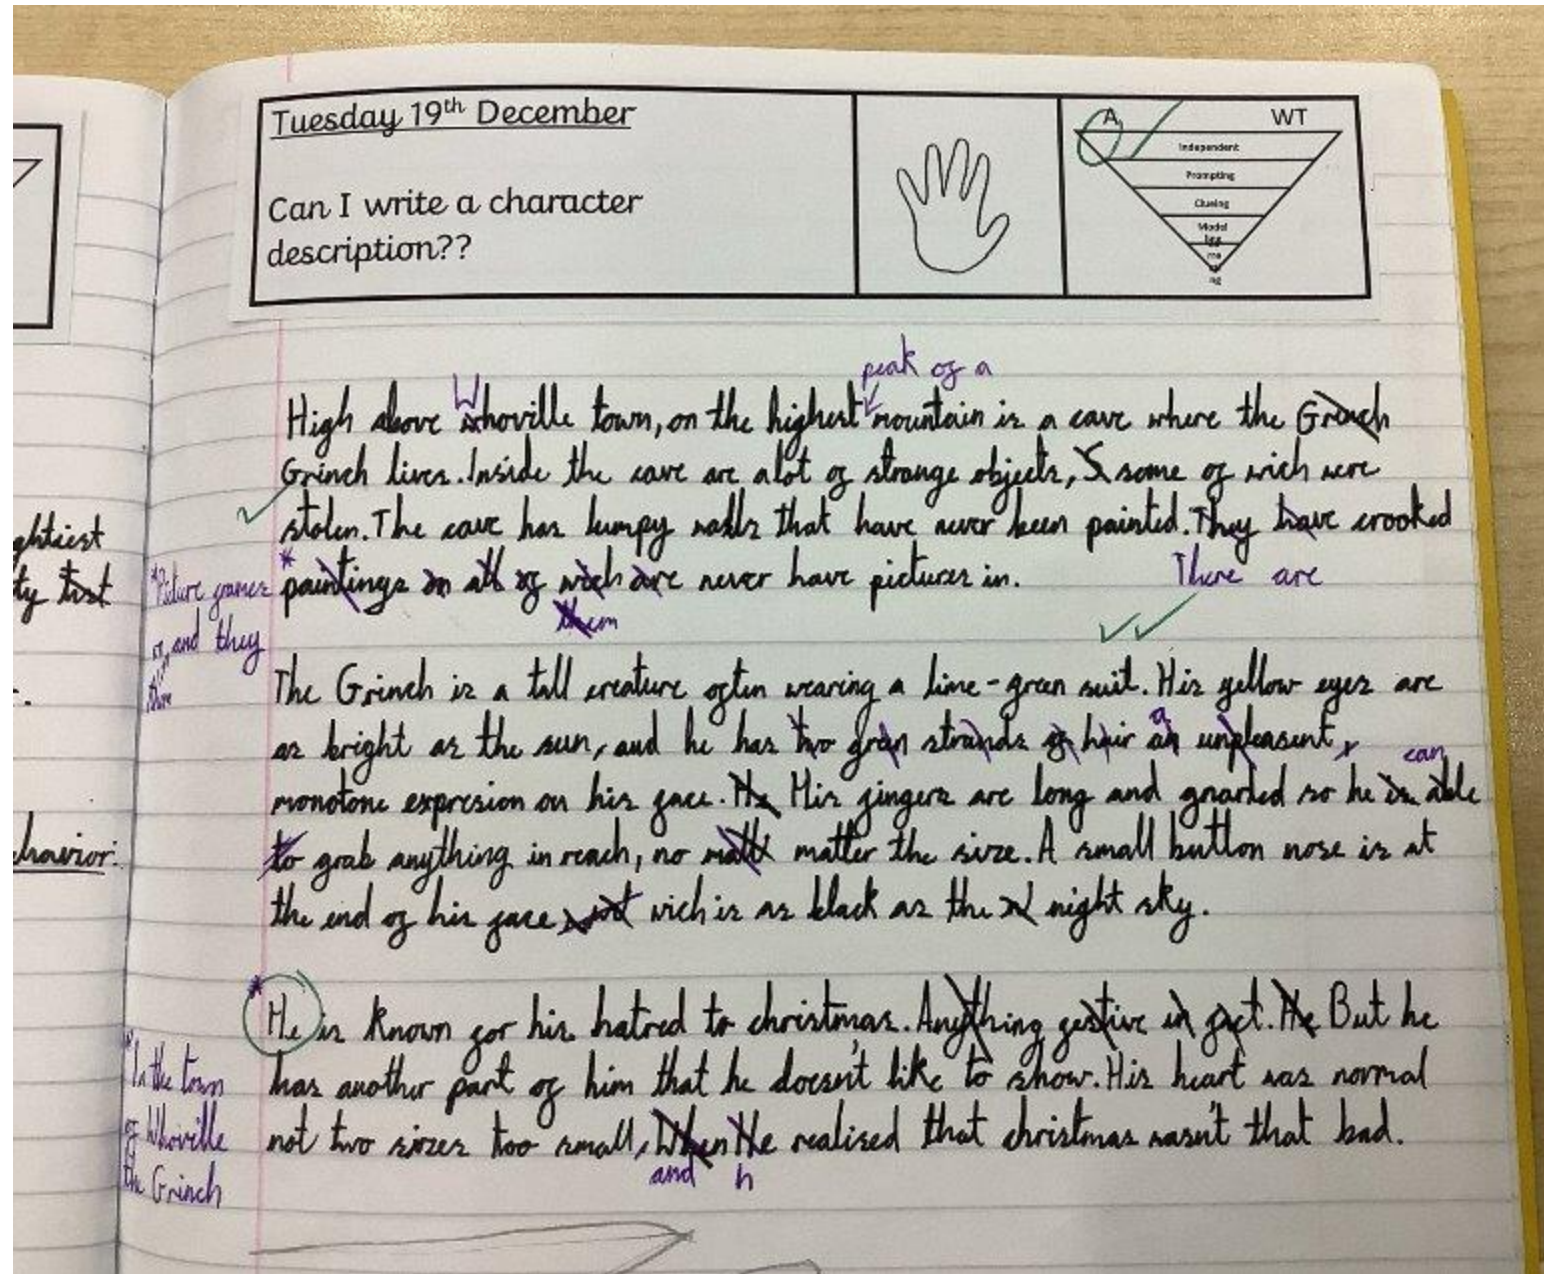 Tuesday 19th December
Can I write a character
description??
A
WT
Independent
Prompting
Clueing
Model
peak of a
High above Whoville town, on the highest mountain is a cave where the Grinch
Grinch lives. Inside the cave are alot of strange objects, S some of wich were
stolen. The cave has lumpy walls that have never been painted. They have crooked
*paintings on all of wich are never have pictures in.
There are
them
The Grinch is a tall creature often wearing a lime-green suit. His yellow eyes are
as bright as the sun, and he has two green strands of hair an unpleasent,
a
can
monotone expresion on his face. He His fingers are long and gnarled so he is able
to grab anything in reach, no matt matter the size. A small button nose is at
the end of his face wich is as black as the night sky.
*He is known for his hatred to christmas. Anything festive in fact. He But he
has another part of him that he doesn't like to show. His heart was normal
not two sizes too small, When He realised that christmas wasn't that bad.
and h
*Picture frames
and they
*In the town
of Whoville
the Grinch
ghtiest
ty tist
ehavior: